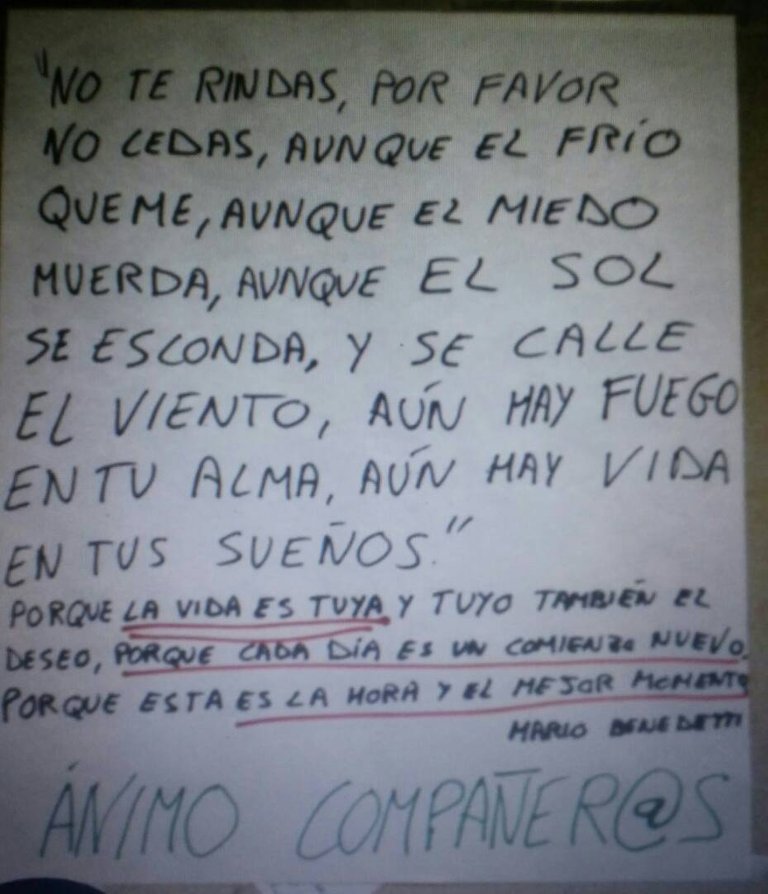 "NO TE RINDAS, POR FAVOR
NO CEDAS, AUNQUE EL FRÍO
QUEME, AUNQUE EL MIEDO
MUERDA, AUNQUE EL SOL
SE ESCONDA, Y SE CALLE
EL VIENTO, AÚN HAY FUEGO
EN TU ALMA, AÚN HAY VIDA
EN TUS SUEÑOS."
PORQUE LA VIDA ES TUYA Y TUYO TAMBIÉN EL
DESEO, PORQUE CADA DÍA ES UN COMIENZO NUEVO.
PORQUE ESTA ES LA HORA Y EL MEJOR MOMENTO
MARIO BENEDETTI
ÁNIMO COMPAÑER@S